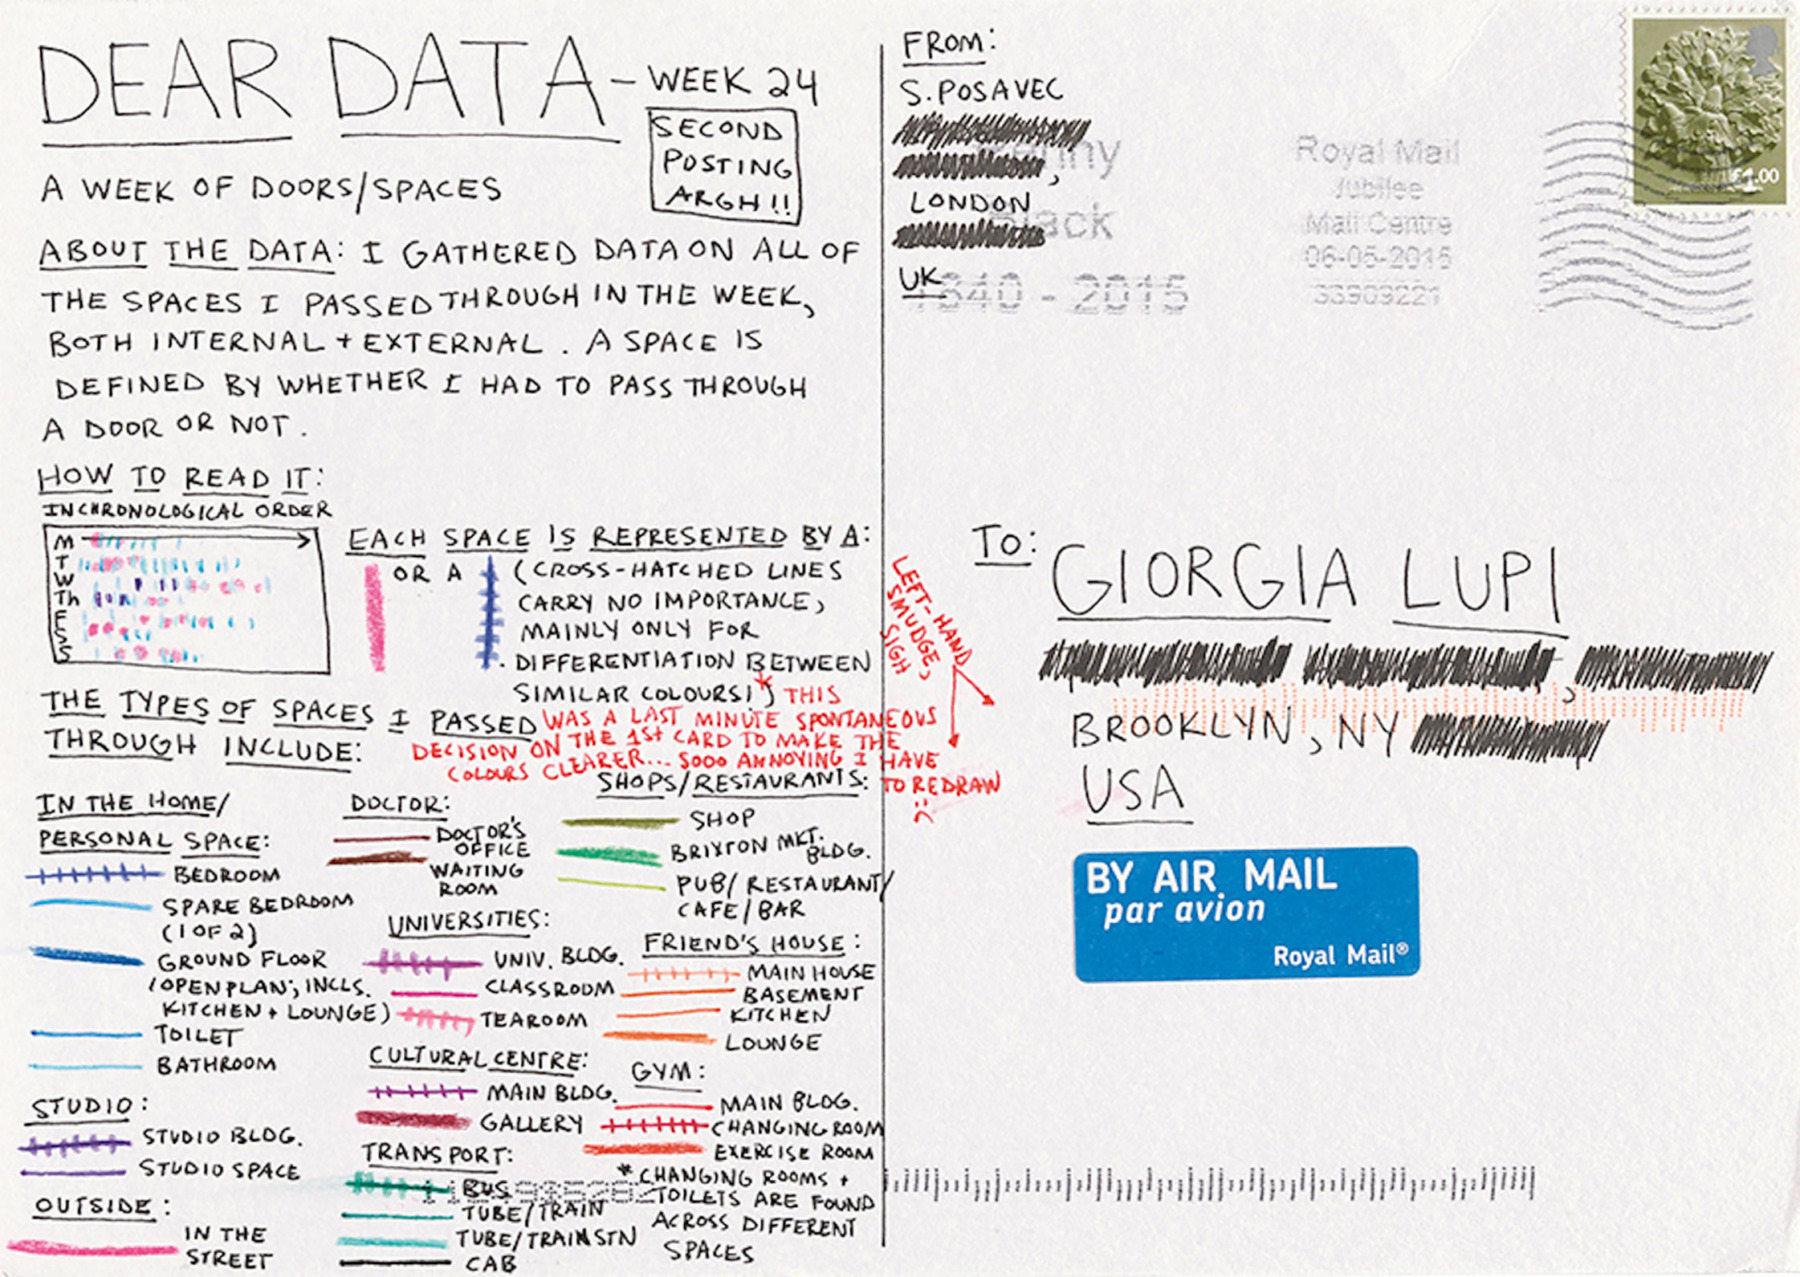 DEAR DATA - WEEK 24
SECOND
POSTING
ARGH!!
A WEEK OF DOORS/SPACES
ABOUT THE DATA: I GATHERED DATA ON ALL OF
THE SPACES I PASSED THROUGH IN THE WEEK,
BOTH INTERNAL + EXTERNAL. A SPACE IS
DEFINED BY WHETHER I HAD TO PASS THROUGH
A DOOR OR NOT.
HOW TO READ IT:
IN CHRONOLOGICAL ORDER
M
T
W
Th
F
S
S
EACH SPACE IS REPRESENTED BY A:
OR A (CROSS-HATCHED LINES
CARRY NO IMPORTANCE,
MAINLY ONLY FOR
DIFFERENTIATION BETWEEN
SIMILAR COLOURS!)
* THIS
WAS A LAST MINUTE SPONTANEOUS
DECISION ON THE 1st CARD TO MAKE THE
COLOURS CLEARER... SOOO ANNOYING I HAVE
TO REDRAW
:(
LEFT-HAND
SMUDGE,
SIGH
THE TYPES OF SPACES I PASSED
THROUGH INCLUDE:
IN THE HOME/
PERSONAL SPACE:
BEDROOM
SPARE BEDROOM
(1 OF 2)
GROUND FLOOR
(OPEN PLAN; INCLS.
KITCHEN + LOUNGE)
TOILET
BATHROOM
STUDIO:
STUDIO BLDG.
STUDIO SPACE
OUTSIDE:
IN THE
STREET
DOCTOR:
DOCTOR'S
OFFICE
WAITING
ROOM
UNIVERSITIES:
UNIV. BLDG.
CLASSROOM
TEAROOM
CULTURAL CENTRE:
MAIN BLDG.
GALLERY
TRANSPORT:
BUS
TUBE/TRAIN
TUBE/TRAIN STN
CAB
SHOPS/RESTAURANTS:
SHOP
BRIXTON MKT.
BLDG.
PUB/RESTAURANT/
CAFE/BAR
FRIEND'S HOUSE:
MAIN HOUSE
BASEMENT
KITCHEN
LOUNGE
GYM:
MAIN BLDG.
CHANGING ROOM
EXERCISE ROOM
* CHANGING ROOMS +
TOILETS ARE FOUND
ACROSS DIFFERENT
SPACES
FROM:
S. POSAVEC
LONDON
UK
Black
1840 - 2015
Royal Mail
Jubilee
Mail Centre
06-05-2015
33909221
£1.00
TO: GIORGIA LUPI
BROOKLYN, NY
USA
BY AIR MAIL
par avion
Royal Mail®